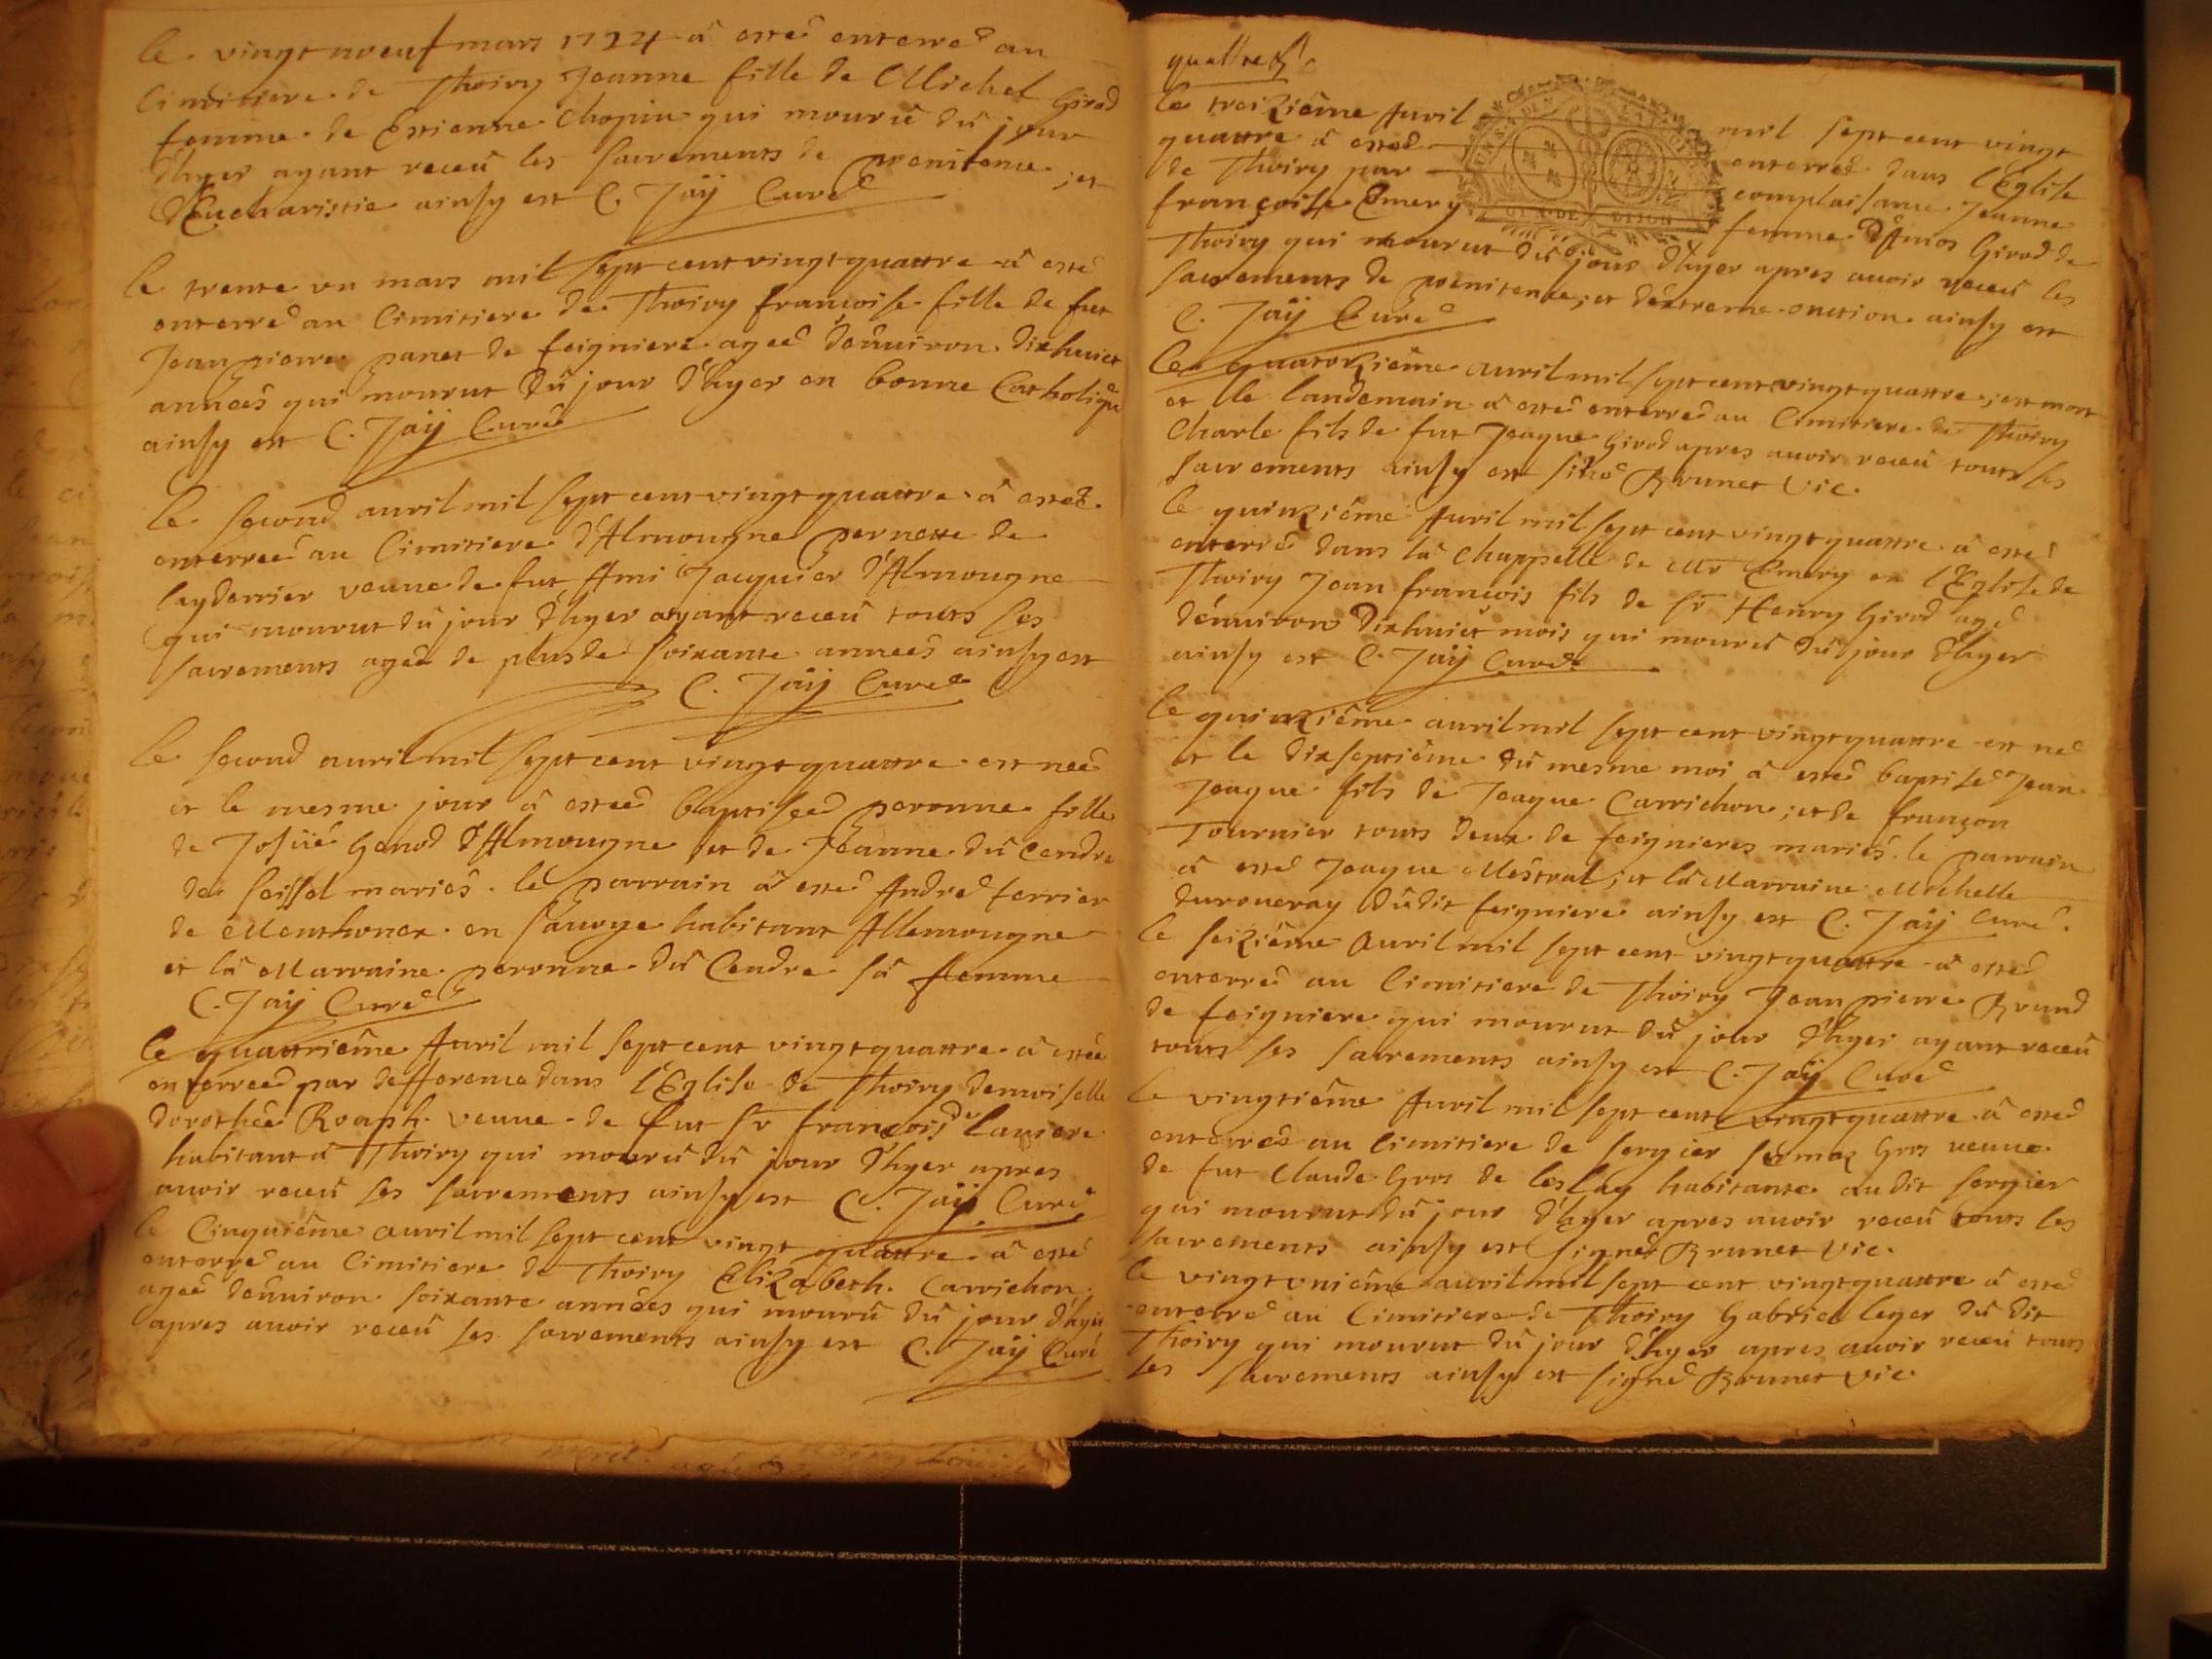 le vingt noeuf mars 1724 â estée enterreé au
Cimitiere de Thoiry Jeanne fille de Michel Girod
femme de Estienne Chopin qui mourû dû jour
d'hyer ayant receû les sacrements de poenitence ; et
d'Eucharistie ainsy est C. Jaÿ Curé
le trente un mars mil sept cent vingt quattre â esté
enterré au Cimitiere de Thoiry françoise fille de fut
Jean pierre panet de feigniere ageé d'énuiron dixhuict
anneés qui mourut dû jour d'hyer en bonne Catholique
ainsy est C. Jaÿ Curé
le second auril mil sept cent vingt quattre â esteé
enterreé au Cimitiere d'Almougne pernette de
layderrier veuue de fut Ami Jacquier d'Almougne
qui mourut dû jour d'hyer ayant receu touts ses
sacrements ageé de plus de soixante anneés ainsy est
C. Jaÿ Curé
le second auril mil sept cent vingt quattre est neé
et le mesme jour â esteé baptiseé peronne fille
de Josüé Genod d'Almougne et de Jeanne dû Cendre
de seissel mariés. le parrain â esté André ferrier
de Menthonex en sauoye habitant Allemougne
et lâ Marraine peronne dû Cendre sâ femme
C. Jaÿ Curé
le quattriême Auril mil sept cent vingt quattre â esteé
enterreé par defference dans l'Eglise de Thoiry demoiselle
dorotheé Roaph veuue de fut Sr françois de lauiere
habitant â Thoiry qui mourû dû jour d'hyer apres
auoir receu ses sacrements ainsy est C. Jaÿ Curé
le Cinquiême auril mil sept cent vingt quattre â esté
enterré au Cimitiere de Thoiry Elizabeth Carrichon
ageé d'énuiron soixante anneés qui mourû dû jour d'hyer
apres auoir receu ses sacrements ainsy est C. Jaÿ Curé
quattre
le treiziême Auril mil sept cent vingt
quattre â esteé enterreé dans l'Eglise
de Thoiry par complaisance Jeanne
françoise Emery femme d'Amos Girod de
Thoiry qui mourut dû jour d'hyer apres auoir receu les
sacrements de poenitence ; et d'extreme-onction ainsy est
C. Jaÿ Curé
GEN. DE DIJON
le quatorziême auril mil sept cent vingt quattre ; est mort
et le landemain â esté enterré au Cimitiere de Thoiry
Charle fils de fut Jeaque Girod apres auoir receu touts ses
sacrements ainsy est signé Brunet vic.
le quinziême Auril mil sept cent vingt quattre â esté
enterré dans lâ chappelle de Mr Emery en l'Eglise de
Thoiry Jean françois fils de Sr Henry Girod agé
d'énuiron dixhuict mois qui mourû dû jour d'hyer
ainsy est C. Jaÿ Curé
le quinziême auril mil sept cent vingt quattre est né
et le dixseptiême dû mesme moi â esté baptisé Jean
Jeaque fils de Jeaque Carrichon ; et de françon
Tournier touts deux de feignieres mariés. le parrain
â esté Jeaque Mestral ; et lâ Marraine Michelle
duroueray dûdit feigniere ainsy est C. Jaÿ Curé
le seiziême Auril mil sept cent vingt quattre â esté
enterré au Cimitiere de Thoiry Jean pierre Brund
de feigniere qui mourut dû jour d'hyer ayant receu
touts ses sacrements ainsy est C. Jaÿ Curé
le vingtiême Auril mil sept cent vingt quattre â esté
enterreé au Cimitiere de sergier Gros ueuue
de fut Claude Gros de les lay habitante audit sergier
qui mourut dû jour d'hyer apres auoir receu touts les
sacrements ainsy est signé Brunet vic.
le vingt uniême auril mil sept cent vingt quattre â esté
enterré au Cimitiere de Thoiry Gabriel leger dû dit
Thoiry qui mourut dû jour d'hyer apres auoir receu touts
les sacrements ainsy est signé Brunet vic.